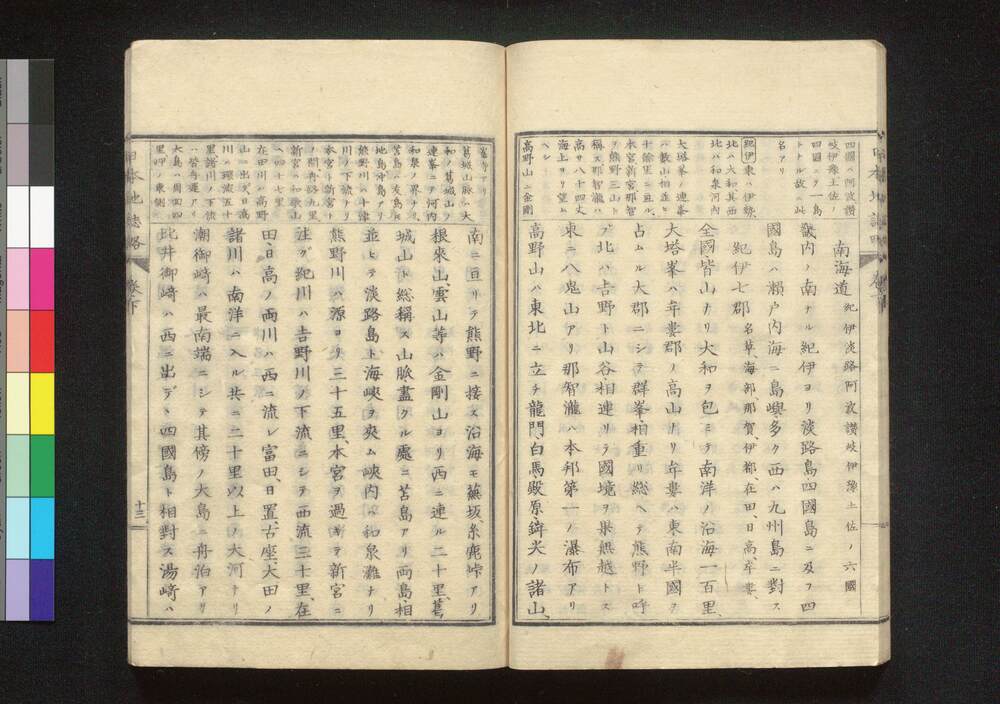 南海道 紀伊淡路阿波讃岐伊豫土佐ノ六國
畿内ノ南ナル紀伊ヨリ淡路島四國島ニ及フ四
國島ハ瀬戸内海ニ島嶼多ク西ハ九州島ニ對ス
紀伊七郡 名草、海部、那賀、伊都、在田、日高、牟婁、
全國皆山ナリ大和ヲ包ミテ南洋ノ沿海一百里、
大塔峯ハ牟婁郡ノ高山ナリ牟婁ハ東南半國ヲ
占ムル大郡ニシテ群峯相重リ総ヘテ熊野ト呼
ブ北ハ吉野ト山谷相連リテ國境ヲ果無越トス
東ニ八鬼山アリ那智瀧ハ本邦第一ノ瀑布アリ
高野山ハ東北ニ立チ龍門、白馬殿原、鉾尖ノ諸山、
四國ハ阿波讃
岐伊豫土佐ノ
四國ニテ一島
トナル故ニ此
名アリ
紀伊 東ハ伊勢、
北ハ大和其西
北ハ和泉河内
大塔峯ノ連峯
ハ数山相並ヒ
十餘里ニ亘ル、
本宮新宮那智
ヲ熊野三山ト
稱ス那智瀧ハ
高サ八十四丈
海上ヨリ望ム
ヘシ
高野山ニ金剛
峯寺アリ
葛城山脈ハ大
和ノ葛城山ノ
連峯ニテ河内
和泉ノ界ナリ、
苫島ハ友島
地島沖島アリ
熊野川ハ十津
川ノ下流ナリ
本宮ヨリ新宮
ノ間舟路九里
新宮ハ和歌山
ヘ四十七里
在田川ハ高野
山ニ出ツ日高
川ハ環流五十
里諸川ノ下流
ハ皆舟運アリ
大島ハ周回四
里岬ノ東側
南ニ亘リテ熊野ニ接ス沿海モ蕪坂、糸鹿峠アリ
根來山、雲山等ハ金剛山ヨリ西ニ連ル二十里、葛
城山ト総稱ス山脈盡クル處ニ苫島アリ両島、相
並ヒテ淡路島ト海峡ヲ夾ム峡内ハ和泉灘ナリ
熊野川ハ源ヨリ三十五里、本宮ヲ過ギテ新宮ニ
注グ紀川ハ吉野川ノ下流ニシテ西流三十里、在
田、日高ノ両川ハ西ニ流レ富田、日置、古座大田ノ
諸川ハ南洋ニ入ル共ニ二十里以上ノ大河ナリ
潮御崎ハ最南端ニシテ其傍ノ大島ニ舟泊アリ
比井御崎ハ西ニ出デヽ四國島ト相對ス湯崎ハ
日本地誌略 巻下
十三